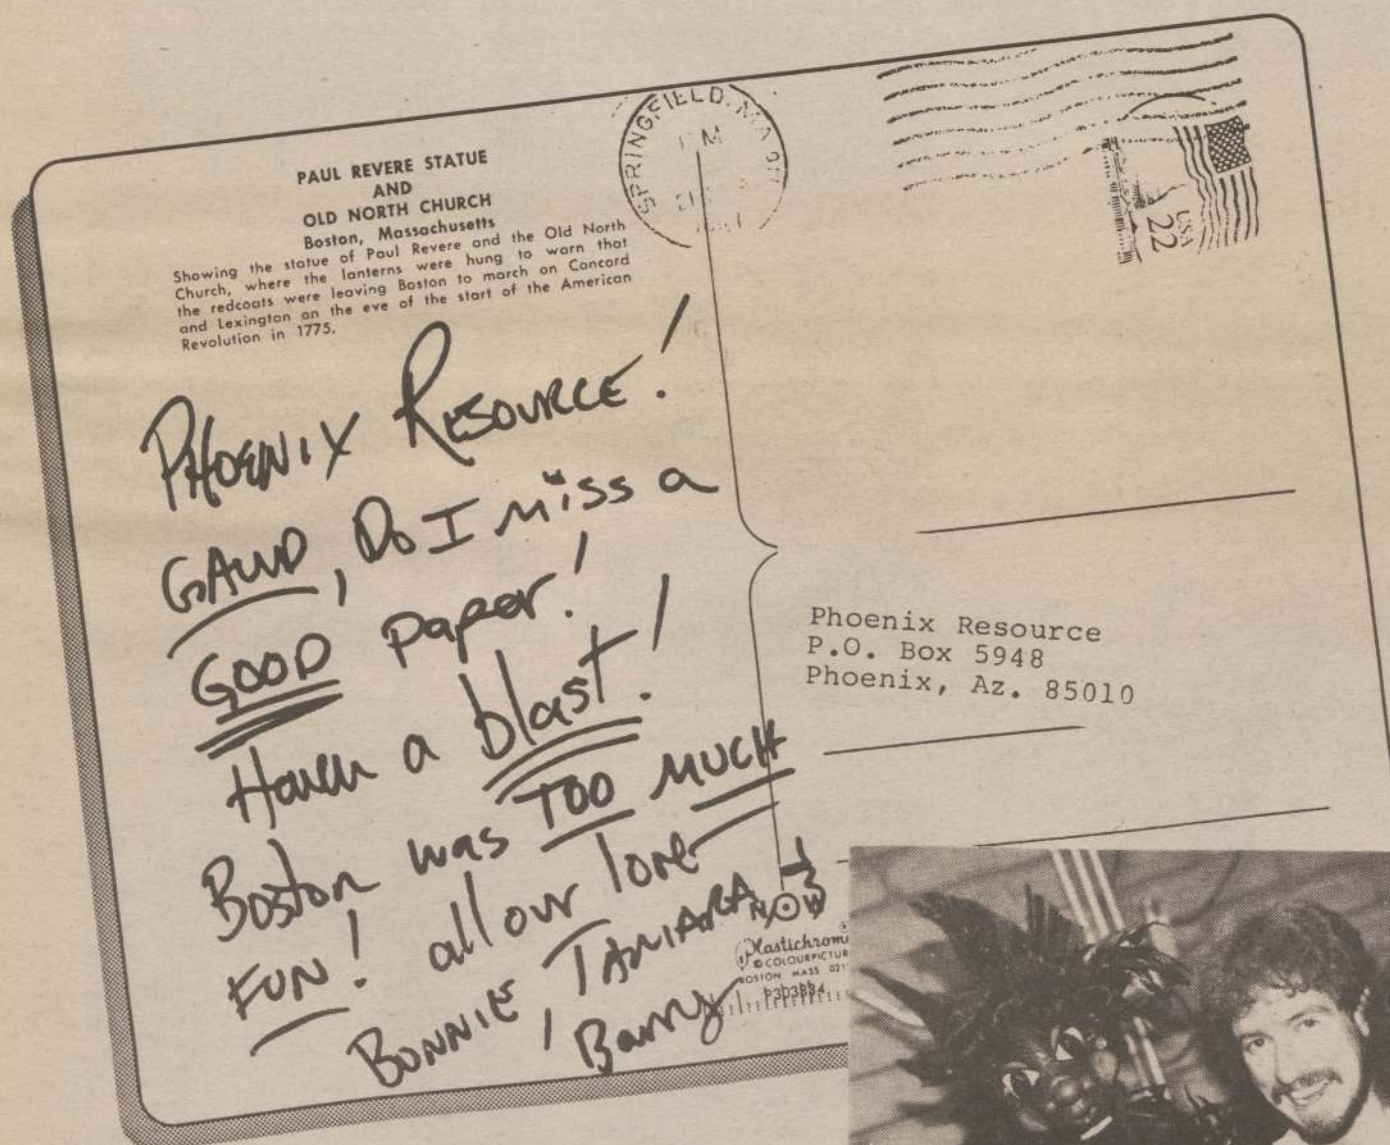 PAUL REVERE STATUE
AND
OLD NORTH CHURCH
Boston, Massachusetts
Showing the statue of Paul Revere and the Old North
Church, where the lanterns were hung to warn that
the redcoats were leaving Boston to march on Concord
and Lexington on the eve of the start of the American
Revolution in 1775.
SPRINGFIELD, MA
PM
USA
22
PHOENIX RESOURCE!
GAWD, Do I miss a
GOOD paper!
Haven a blast!
Boston was TOO MUCH
FUN! all our love
BONNIE, TAMARA
Barry
Phoenix Resource
P.O. Box 5948
Phoenix, Az. 85010
Plastichrome
© COLOURPICTUR
BOSTON MASS 021